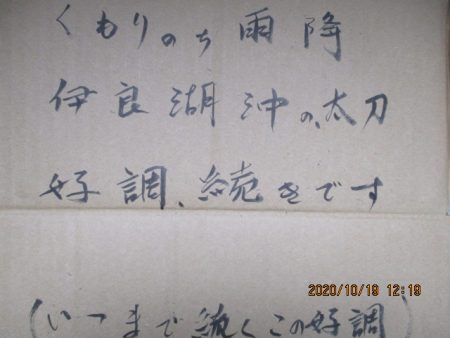 くもりのち雨降
伊良湖沖の太刀
好調、続きです
2020/10/19 12:19
(いつまで続くこの好調)